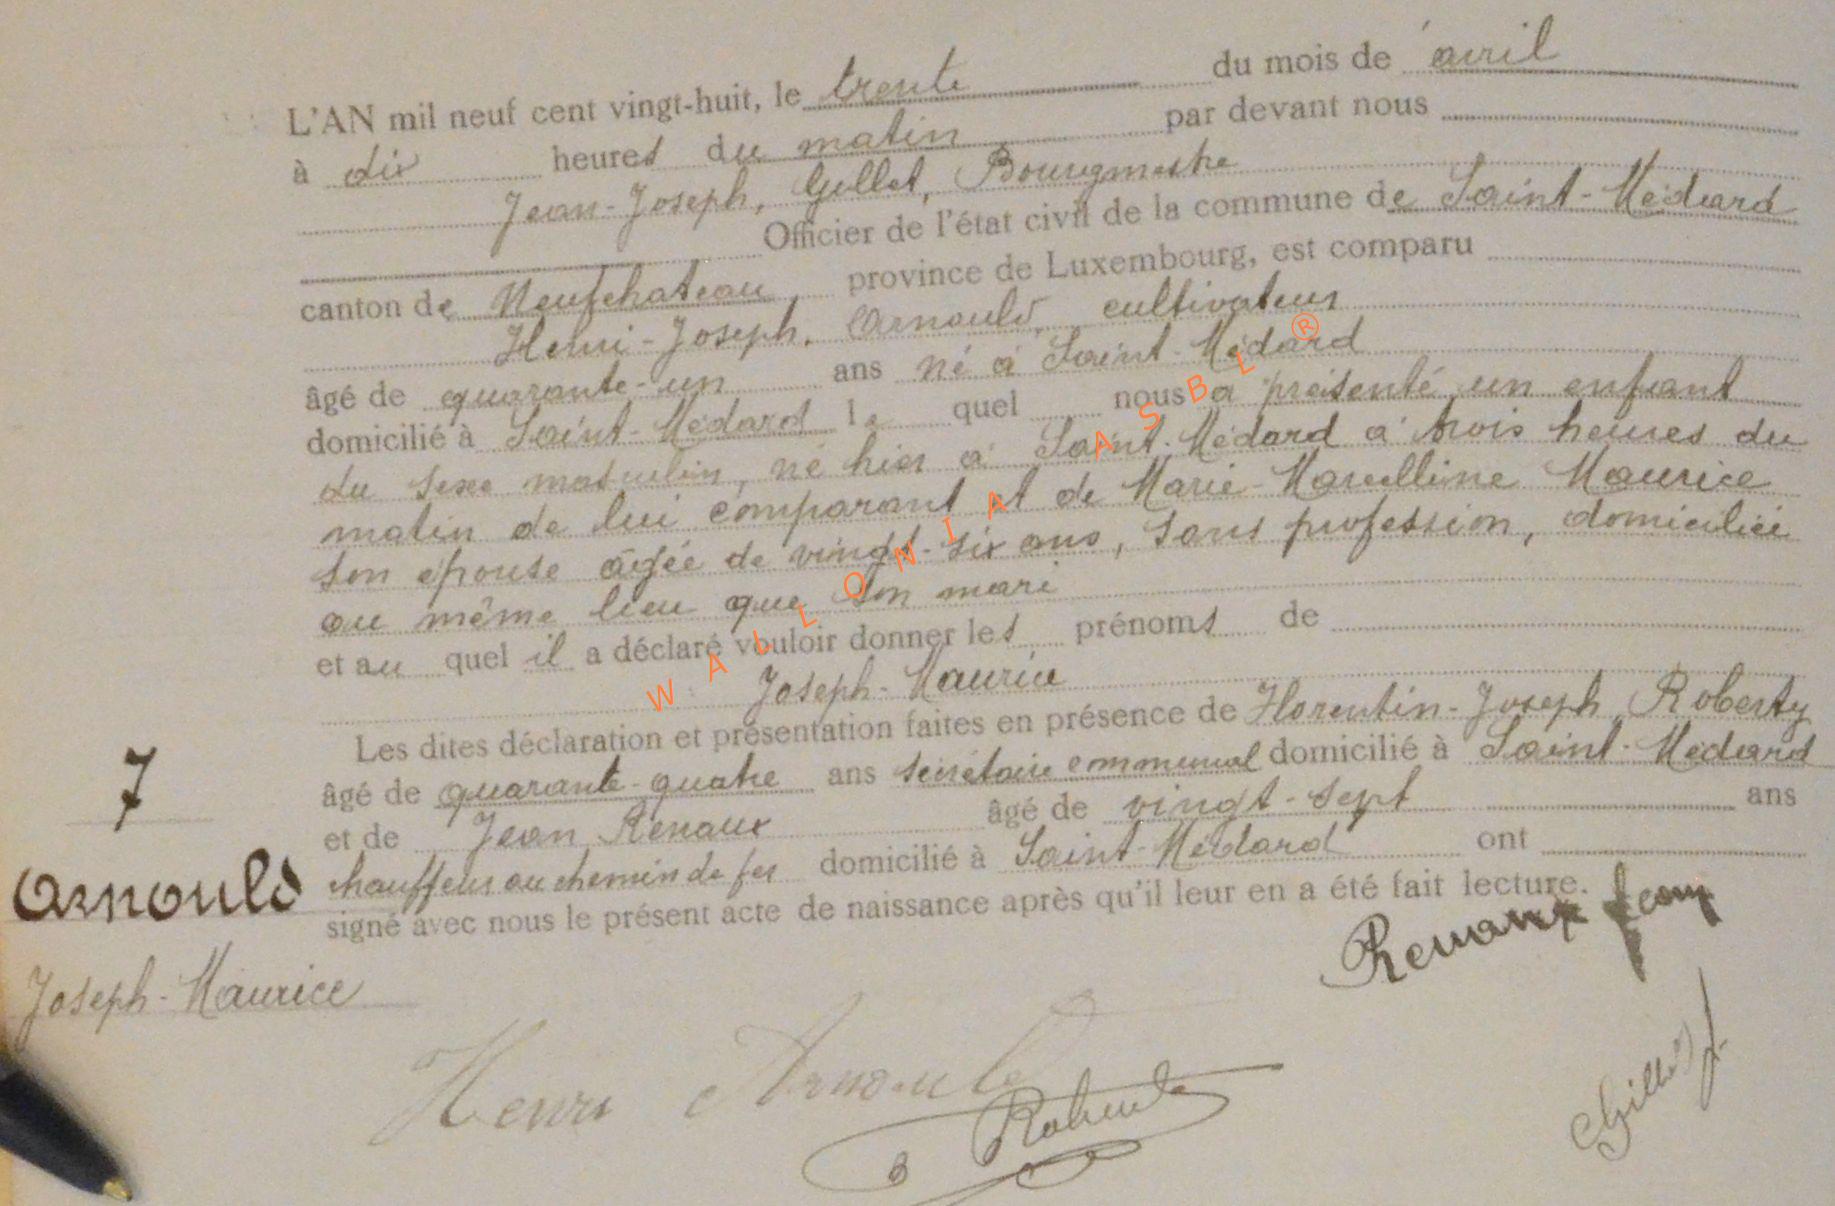 L'AN mil neuf cent vingt-huit, le trente du mois de avril
à dix heures du matin par devant nous
Jean-Joseph, Gillet, Bourgmestre
Officier de l'état civil de la commune de Saint-Médard
canton de Neufchateau province de Luxembourg, est comparu
Henri-Joseph, Arnould, cultivateur
âgé de quarante-un ans né à Saint-Médard
domicilié à Saint-Médard le quel nous a présenté un enfant
du sexe masculin, né hier à Saint-Médard à trois heures du
matin de lui comparant et de Marie-Marcelline Maurice
son épouse âgée de vingt-six ans, sans profession, domiciliée
au même lieu que son mari
et au quel il a déclaré vouloir donner les prénoms de
Joseph-Maurice
Les dites déclaration et présentation faites en présence de Florentin-Joseph Roberty
âgé de quarante-quatre ans secrétaire communal domicilié à Saint-Médard
et de Jean Renaux âgé de vingt-sept ans
chauffeur au chemin de fer domicilié à Saint-Médard ont
signé avec nous le présent acte de naissance après qu'il leur en a été fait lecture.
7
Arnould
Joseph-Maurice
Renaux Jean
Henri Arnould
Roberty
Gillet J.
WALLONIA ASBL ®